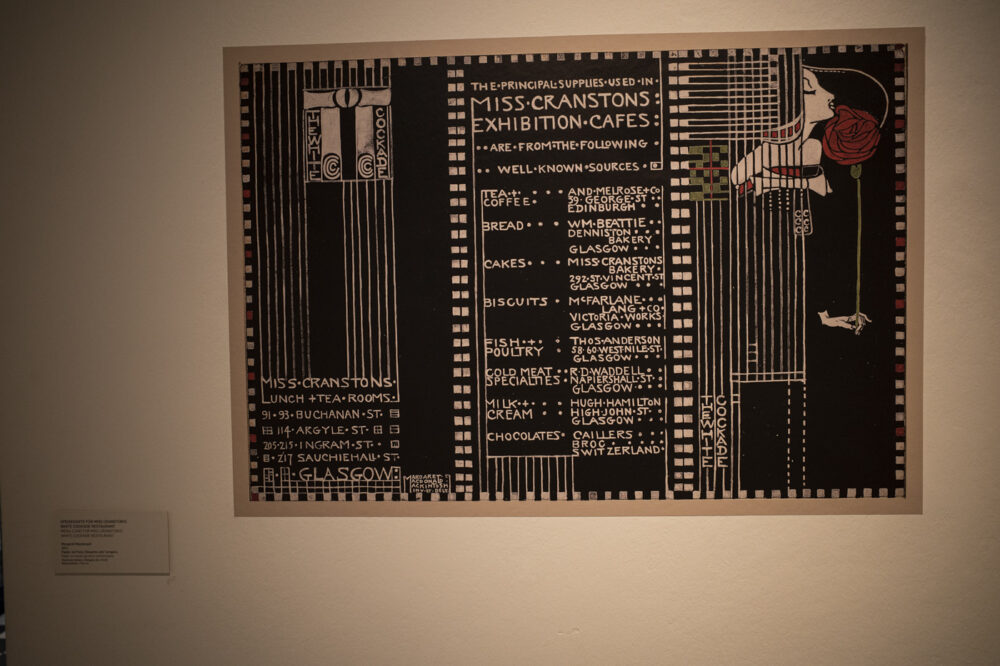 THE WHITE
COCKADE
MISS·CRANSTONS·
LUNCH + TEA·ROOMS·
91·93·BUCHANAN·ST·
114·ARGYLE·ST·
205·215·INGRAM·ST·
217·SAUCHIEHALL·ST·
GLASGOW·
MARGARET·
MACDONALD
MACKINTOSH
INV·ET·DELT
THE·PRINCIPAL·SUPPLIES·USED·IN·
MISS·CRANSTONS:
EXHIBITION·CAFES:
··ARE·FROM·THE·FOLLOWING
··WELL·KNOWN·SOURCES·
TEA·+· AND·MELROSE+CO
COFFEE· 39·GEORGE·ST·
EDINBURGH··
BREAD··· WM·BEATTIE··
DENNISTON··
BAKERY
GLASGOW···
CAKES··· MISS·CRANSTONS
BAKERY·
292·ST·VINCENT·ST
GLASGOW···
BISCUITS·· MCFARLANE···
LANG+CO·
VICTORIA·WORKS
GLASGOW···
FISH·+· THOS·ANDERSON
POULTRY 58·60·WEST·NILE·ST·
GLASGOW···
COLD MEAT R·D·WADDELL··
SPECIALTIES· NAPIERSHALL·ST·
GLASGOW···
MILK·+·· HUGH·HAMILTON
CREAM HIGH·JOHN·ST··
GLASGOW···
CHOCOLATES· CAILLERS···
BROC····
SWITZERLAND·
THE WHITE
COCKADE
Margaret Macdonald